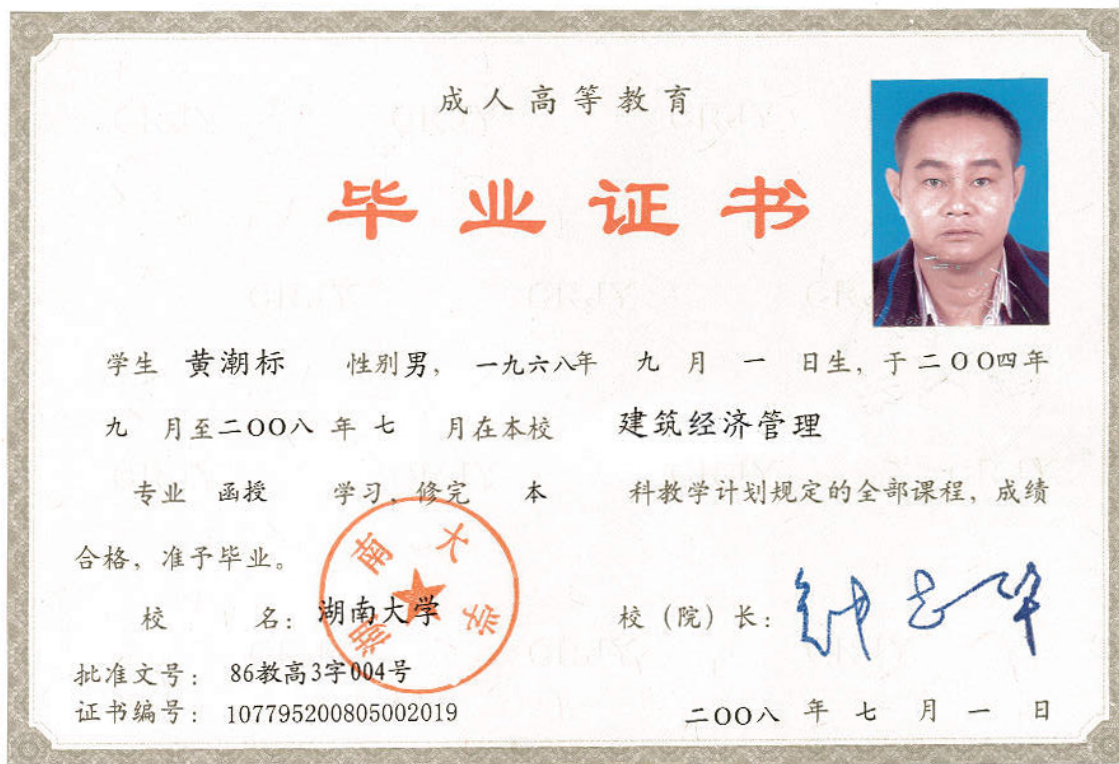 成人高等教育
毕业证书
学生 黄潮标 性别男，一九六八年 九 月 一 日生，于二〇〇四年
九 月至二〇〇八 年 七 月在本校 建筑经济管理
专业 函授 学习，修完 本 科教学计划规定的全部课程，成绩
合格，准予毕业。
湖南大学
校 名：湖南大学 校（院）长：钟志华
批准文号：86教高3字004号
证书编号：107795200805002019 二〇〇八 年 七 月 一 日